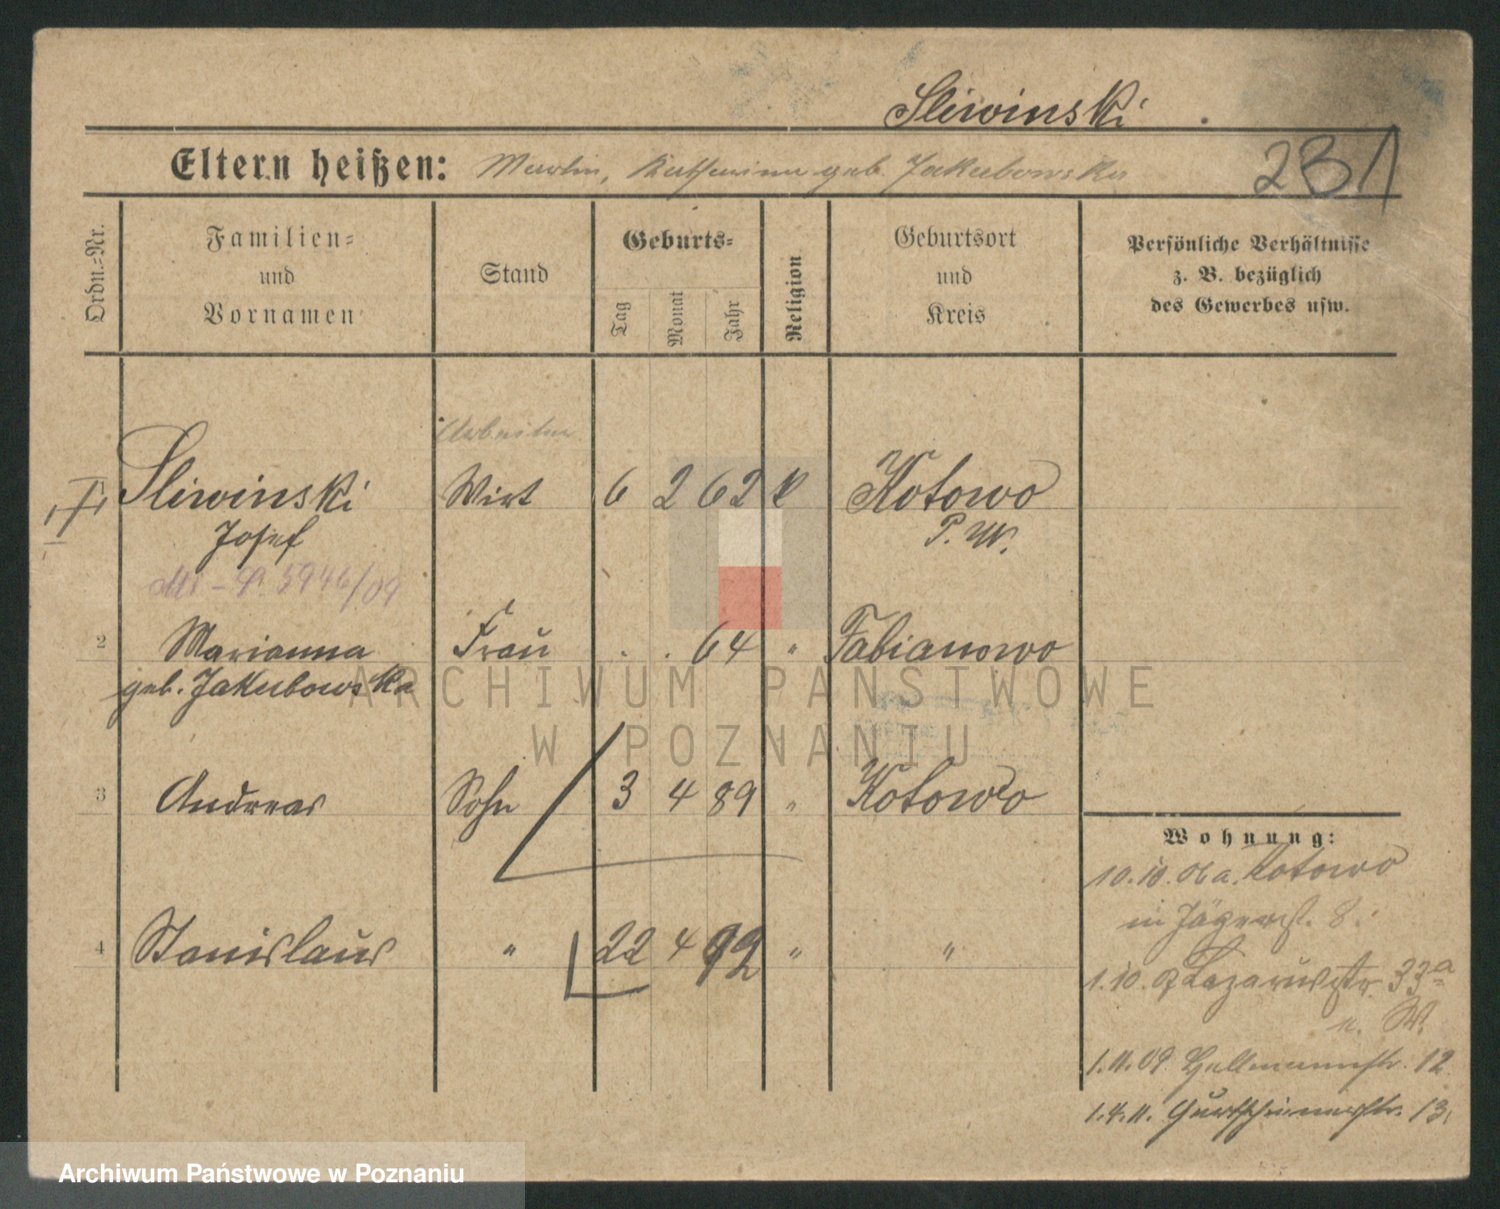 Sliwinski
Eltern heißen: Martin, Katharina geb. Jakubowska
231
Ordn.-Nr.
Familien-
und
Vornamen
Stand
Geburts-
Tag
Monat
Jahr
Religion
Geburtsort
und
Kreis
Persönliche Verhältnisse
z. B. bezüglich
des Gewerbes usw.
Arbeiter
Sliwinski Wirt 6 2 62 k Kotowo
Josef P. W.
5946/09
2 Marianna Frau . . 64 " Fabianowo
geb. Jakubowska
3 Andreas Sohn 3 4 89 " Kotowo
4 Stanislaus " 22 4 92 " "
Wohnung:
10.10. a. Kotowo
in Jägerstr. 8.
1.10. Lazarusstr. 33a
n. W.
1.11.09 Hellmannstr. 12
1.4.11. Gurtschinerstr. 13.
ARCHIWUM PAŃSTWOWE
W POZNANIU
Archiwum Państwowe w Poznaniu